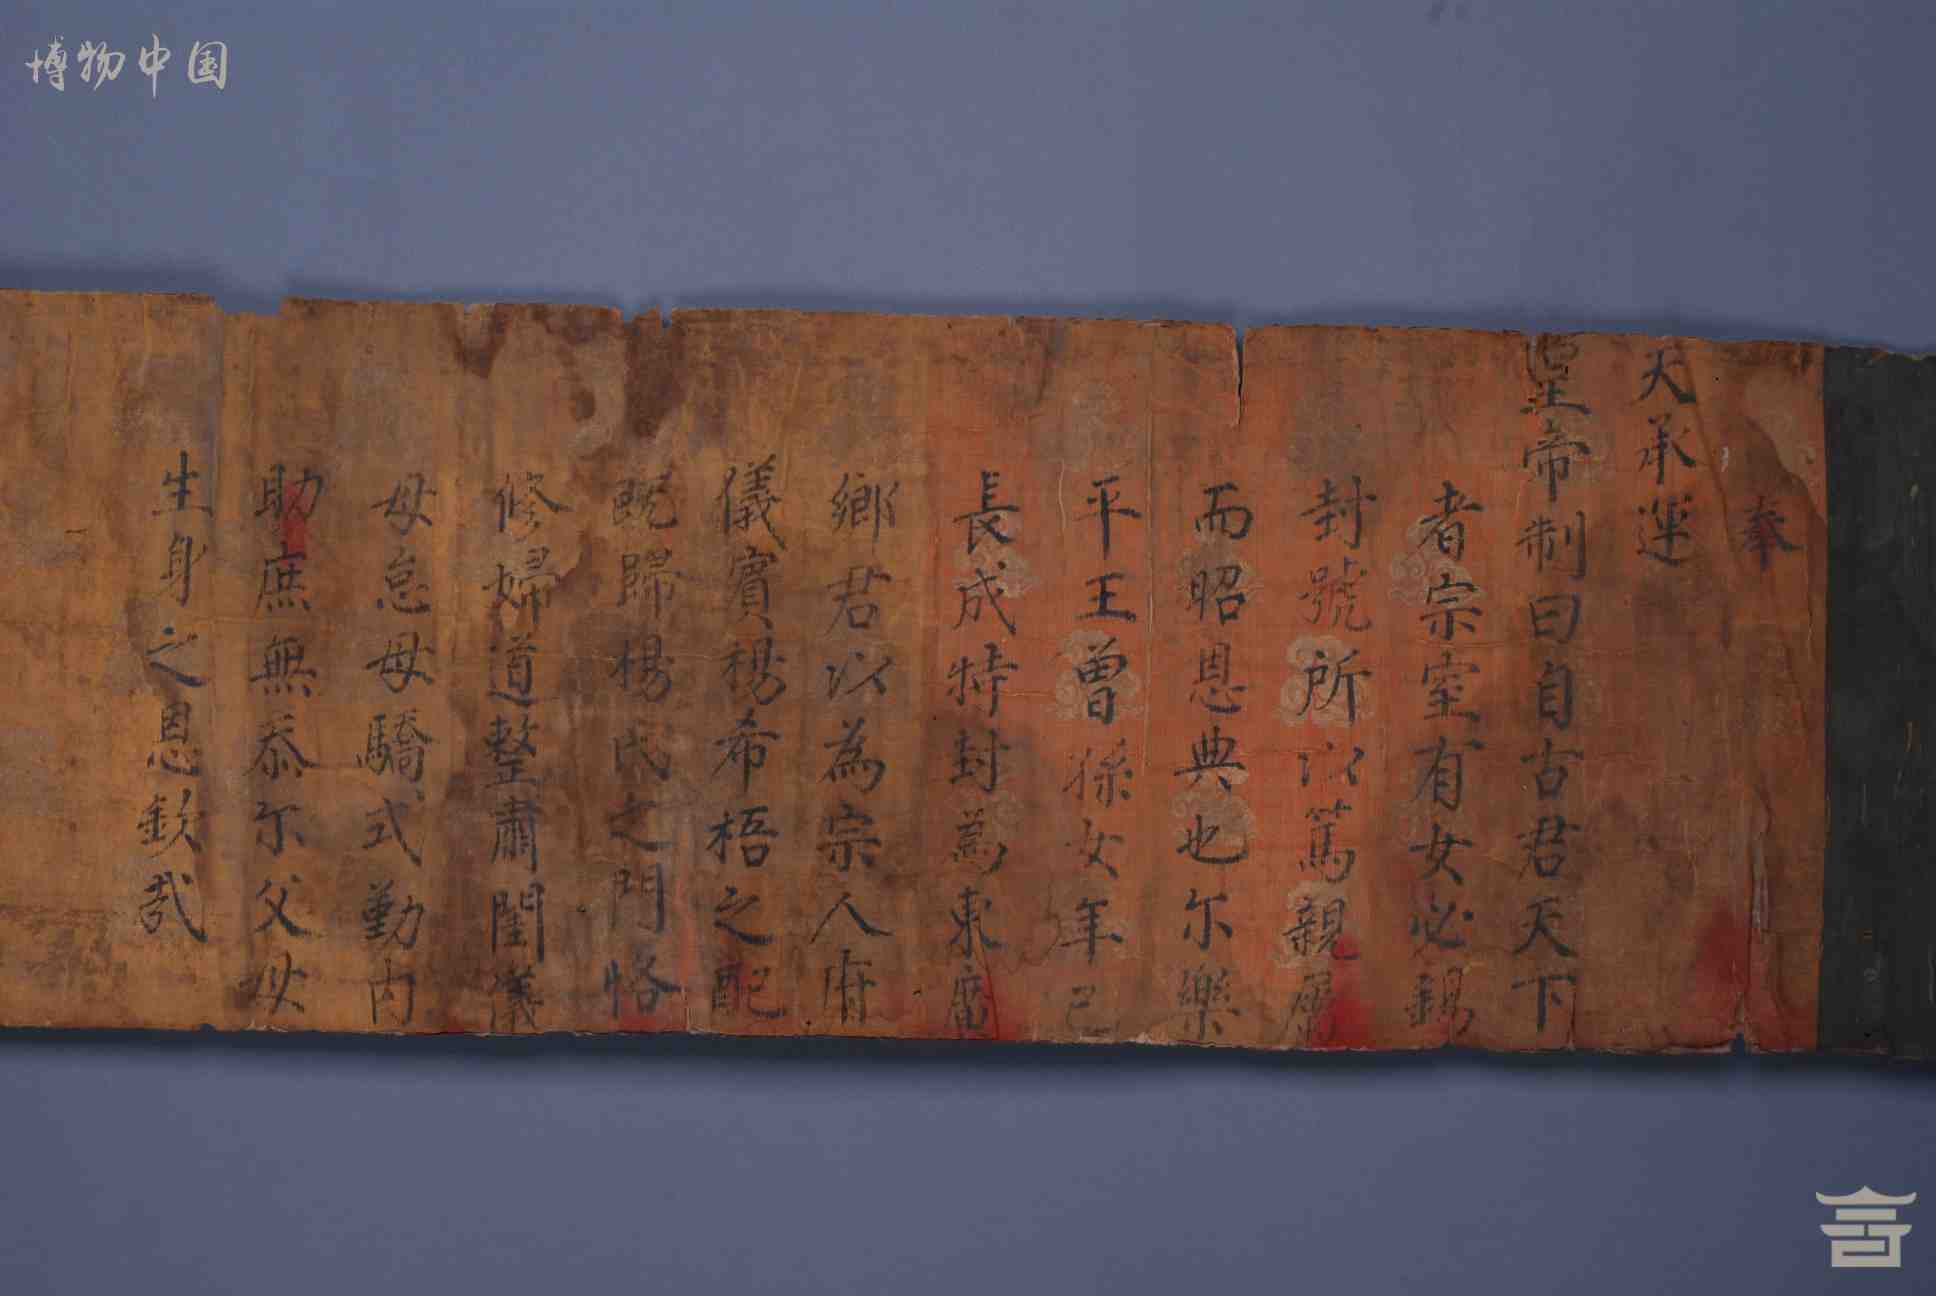 博物中国
奉
天承運
皇帝制曰自古君天下
者宗室有女必錫
封號所以篤親屬
而昭恩典也尔樂
平王曾孫女年已
長成特封為東甯
鄉君以為宗人府
儀賓楊希梧之配
既歸楊氏之門恪
修婦道整肅閨儀
毋怠毋驕式勤内
助庶無忝尔父母
生身之恩欽哉